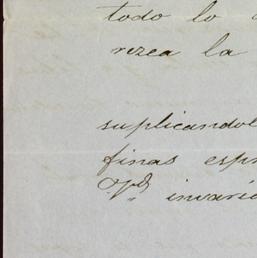 todo lo
rezca la
suplicandol
finas espr
invari